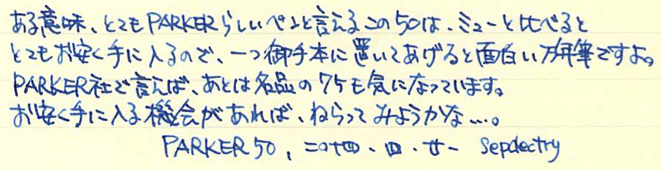 ある意味、とてもPARKERらしいペンと言えるこの50は、ミューと比べると
とてもお安く手に入るので、一つ御手本に置いてあげると面白い万年筆ですよ。
PARKER社で言えば、あとは名品の75も気になっています。
お安く手に入る機会があれば、ねらってみようかな…。
PARKER 50, 二〇十四・四・廿一 Sepdectry